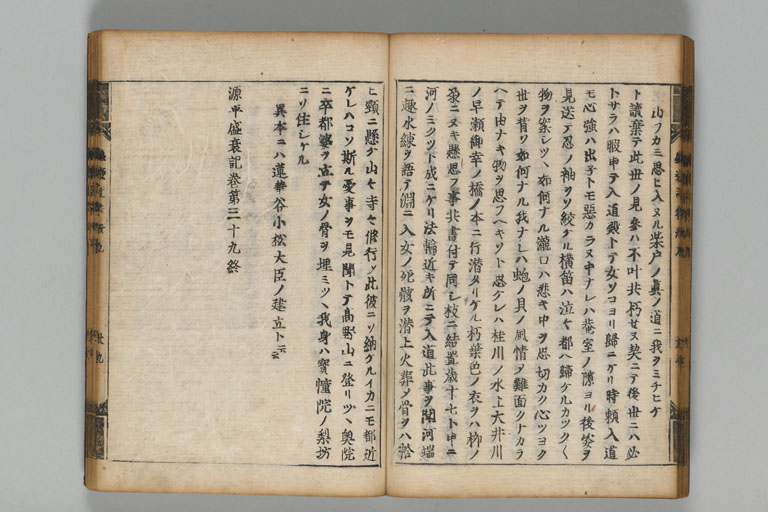 山フカミ思ヒ入ヌル柴戸ノ真ノ道ニ我ヲミチヒケ
ト読棄テ此世ノ見參ハ不叶共朽セヌ契ニテ後世ニハ必
トサラハ暇申テ入道殿トテ女ソコヨリ歸ニケリ時頼入道
モ心強ハ出子トモ惡カラヌ中ナレハ菴室ノ隙ヨリ後姿ヲ
見送テ忍ノ袖ヲソ絞ケル横笛ハ泣々都ヘ歸ケルカツク〱
物ヲ案シツヽ如何ナル瀧口ハ悲キ中ヲ思切カク心ツヨク
世ヲ背ソ如何ナル我ナレハ蚫ノ貝ノ風情ヲ難面クナカラ
ヘテ由ナキ物ヲ思フヘキソト思ケレハ桂川ノ水上大井川
ノ早瀬御幸ノ橋ノ本ニ行潜タリケル朽葉色ノ衣ヲハ柳ノ
朶ニヌキ懸思フ事共書付テ同シ枝ニ結置歳十七ト申ニ
河ノミクツト成ニケリ法輪近キ所ニテ入道此事ヲ聞河端
ニ趣水練ヲ語テ淵ニ入女ノ死骸ヲ潜上火葬メ骨ヲハ拾
ヒ頸ニ懸ケ山々寺々修行ソ此彼ニソ納ケルイカニモ都近
ケレハコソ斯ル憂事ヲモ見聞トテ高野山ニ登リツヽ奥院
ニ卒都婆ヲ立テ女ノ骨ヲ埋ミツヽ我身ハ寳幢院ノ梨坊
ニソ住シケル
異本ニハ蓮華谷小松大臣ノ建立ト云云
源平盛衰記巻第三十九終